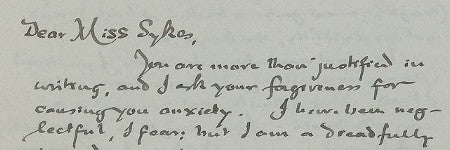 Dear Miss Sykes,
You are more than justified in
writing, and I ask your forgiveness for
causing you anxiety. I have been neg-
lectful, I fear; but I am a dreadfully